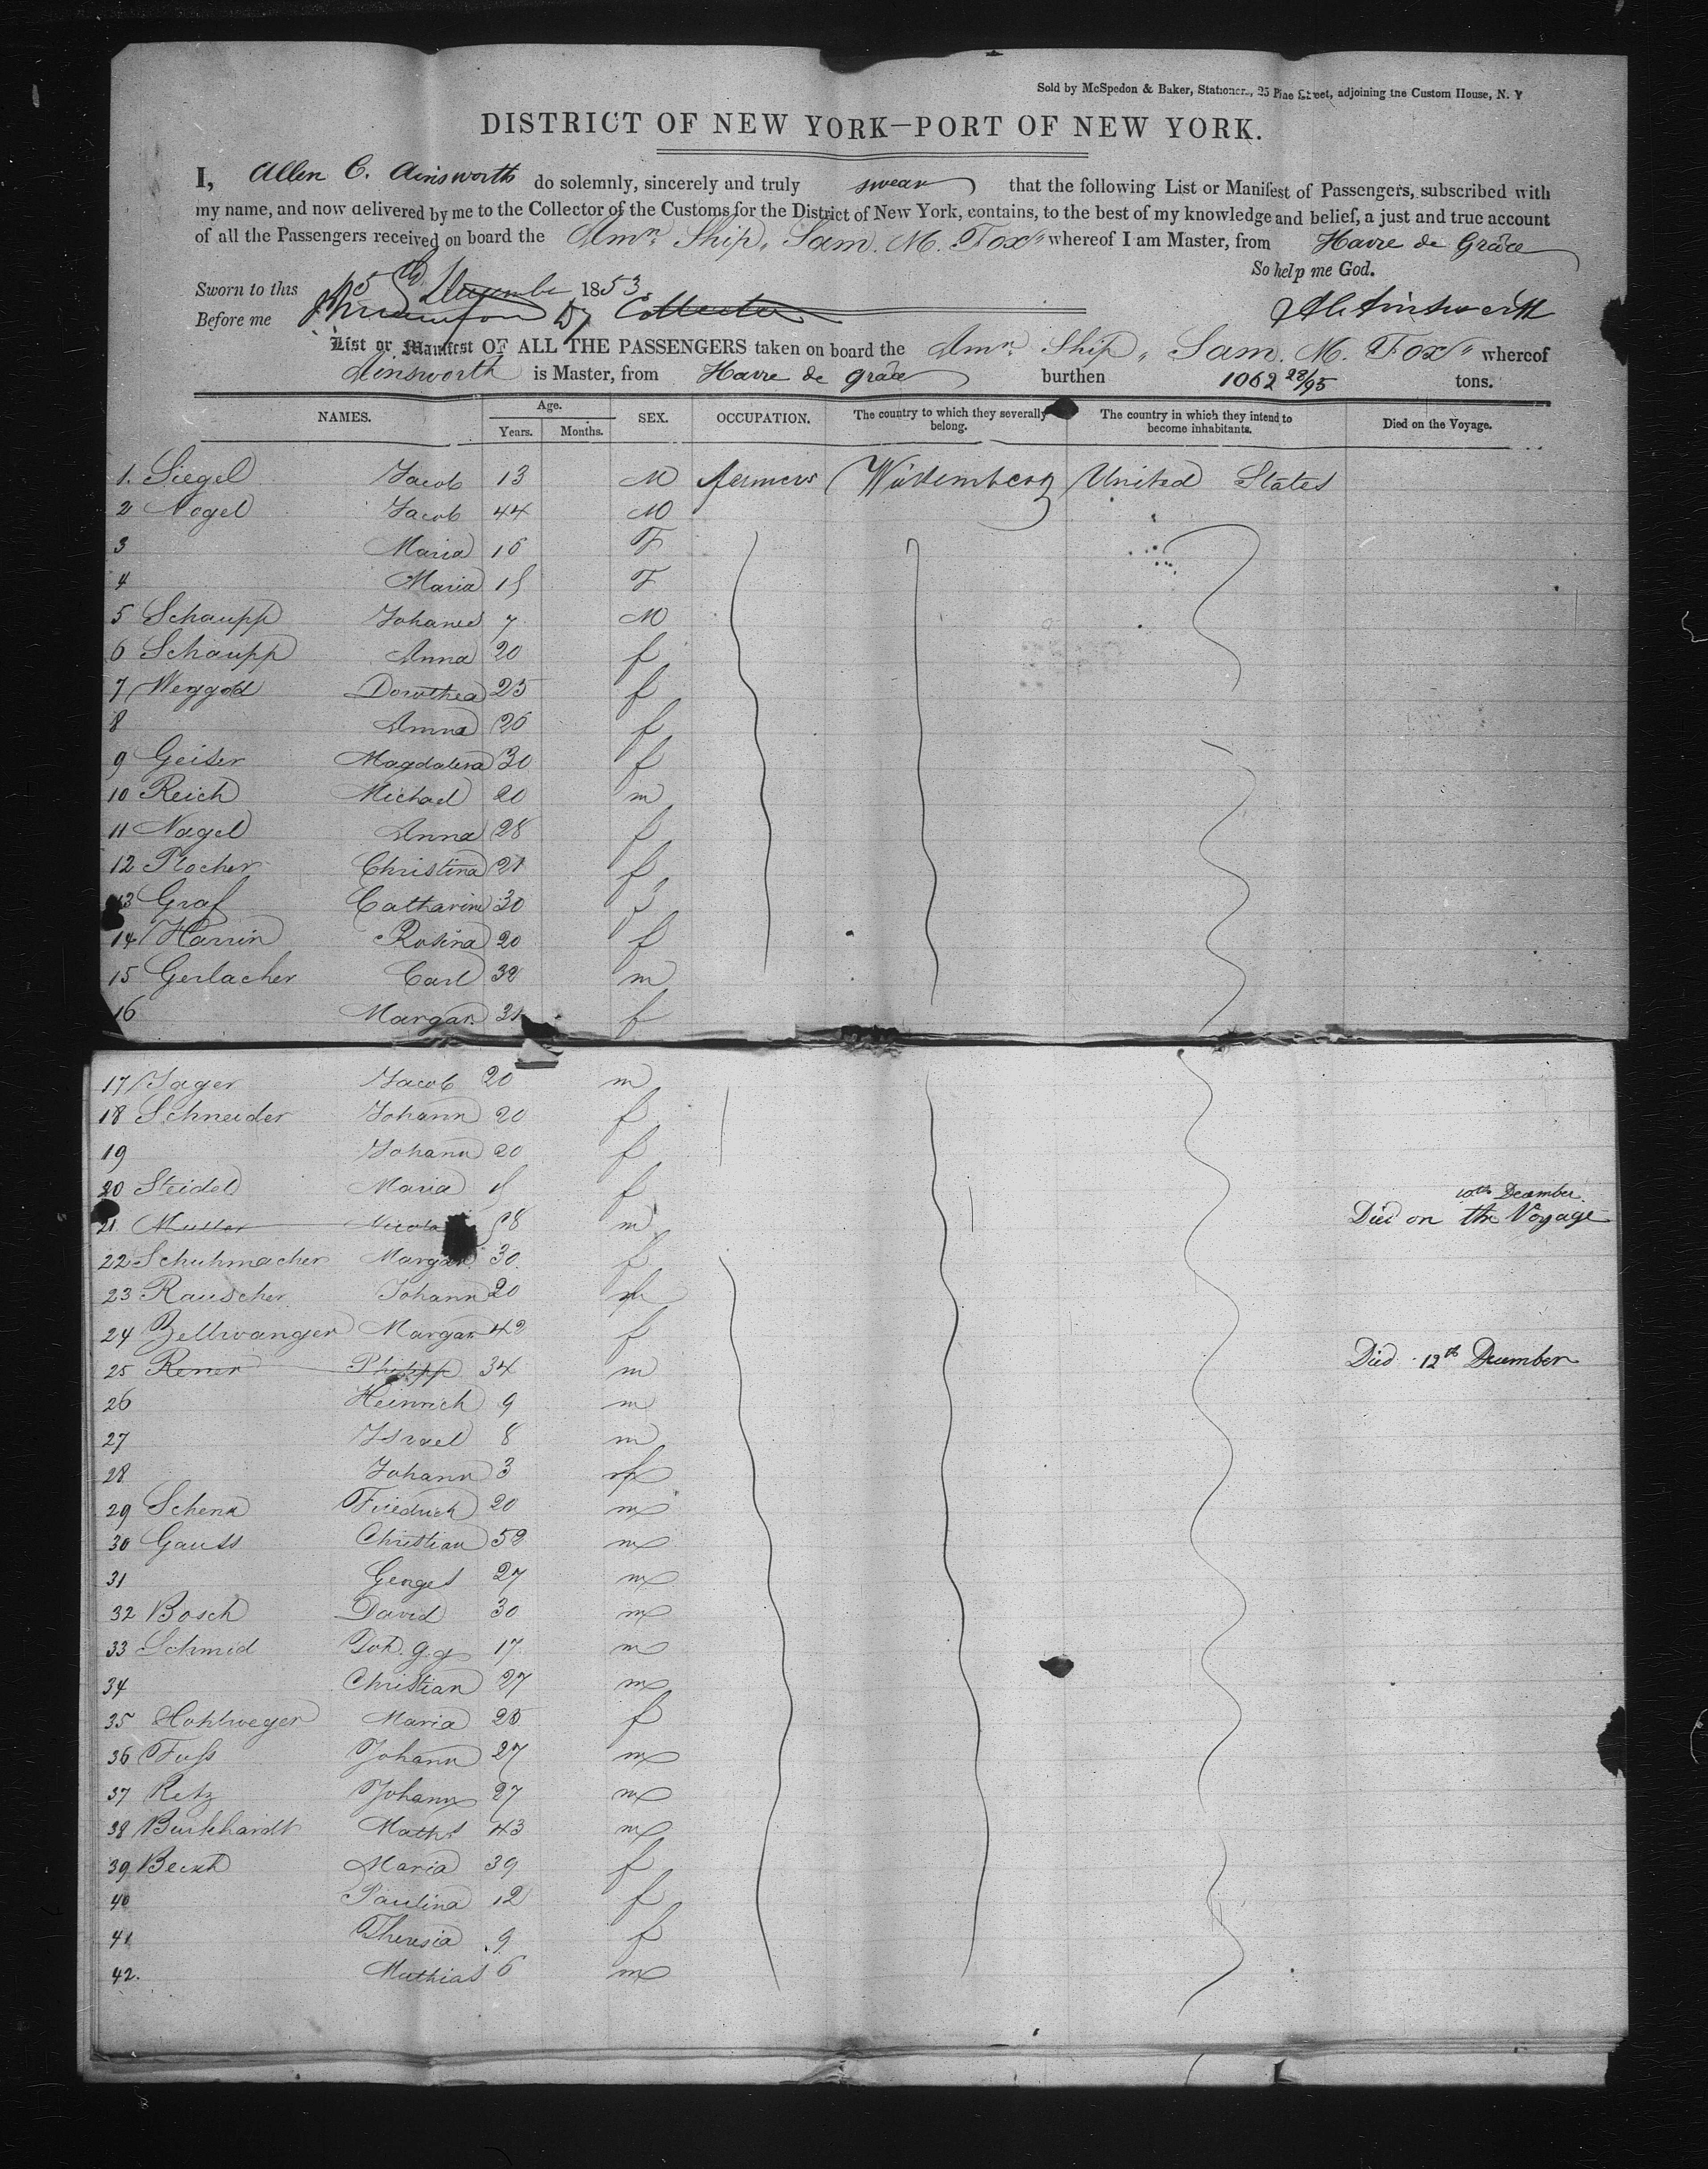 Sold by McSpedon & Baker, Stationers, 25 Pine Street, adjoining the Custom House, N. Y
DISTRICT OF NEW YORK—PORT OF NEW YORK.
I, Allen C. Ainsworth do solemnly, sincerely and truly swear that the following List or Manifest of Passengers, subscribed with
my name, and now delivered by me to the Collector of the Customs for the District of New York, contains, to the best of my knowledge and belief, a just and true account
of all the Passengers received on board the Amn. Ship "Sam. M. Fox" whereof I am Master, from Havre de Grâce
So help me God.
Sworn to this December 1853.
Before me Dy Collector A C Ainsworth
List or Manifest OF ALL THE PASSENGERS taken on board the Amn. Ship "Sam. M. Fox" whereof
Ainsworth is Master, from Havre de Grâce burthen 1062 28/95 tons.
NAMES. Age. Years. Months. SEX. OCCUPATION. The country to which they severally belong. The country in which they intend to become inhabitants. Died on the Voyage.
1. Siegel Jacob 13 M farmers Würtemberg United States
2 Nagel Jacob 44 M
3 Maria 16 F
4 Maria F
5 Schaupp Johanes 7 M
6 Schaupp Anna 20 f
7 Weggod Dorothea 25 f
8 Anna 26 f
9 Geiser Magdalena 30 f
10 Reich Michael 20 m
11 Nagel Anna 28 f
12 Plocher Christina 21 f
13 Graf Catharine 30 f
14 Harrin Rosina 20 f
15 Gerlacher Carl 32 m
16 Margar. 31 f
17 Jager Jacob 20 m
18 Schneider Johann 20 f
19 Johann 20 f
20 Steidel Maria f
10th December
21 Muller Nicola 58 m Died on the Voyage
22 Schuhmacher Margar. 30 f
23 Rauscher Johann 20 m
24 Zellwanger Margar 42 f
25 Renner Philipp 34 m Died 12th December
26 Heinrich 9 m
27 Israel 8 m
28 Johann 3
29 Schenk Friedrich 20 m
30 Gauss Christian 52 m
31 Georges 27 m
32 Bosch David 30 m
33 Schmid Joh. G.g 17 m
34 Christian 27 m
35 Hohlweger Maria 25 f
36 Fuss Johann 27 m
37 Retz Johann 27 m
38 Burkhardt Maths 43 m
39 Beckh Maria 39 f
40 Paulina 12 f
41 Theresia 9 f
42. Mathias 6 m